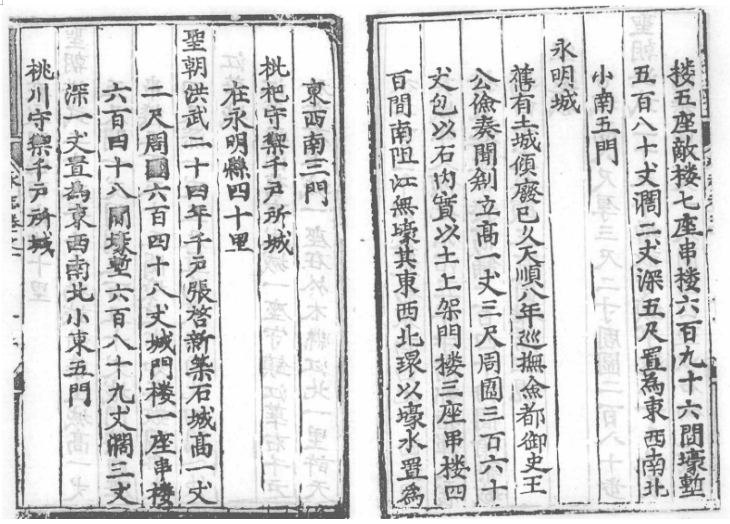 楼五座敵楼七座串楼六百九十六間壕塹
五百八十丈濶二丈深五尺置為東西南北
小南五門
永明城
舊有土城傾廢已久天順八年巡撫僉都御史王
公儉奏聞創立高一丈三尺周圍三百六十
丈包以石内實以土上架門楼三座串楼四
百間南阻江無壕其東西北環以壕水置為
東西南三門
枇杷守禦千戸所城
在永明縣四十里
聖朝洪武二十四年千戸張啓新築石城高一丈
二尺周圍六百四十八丈城門楼一座串楼
六百四十八間壕塹六百八十九丈濶三丈
深一丈置為東西南北小東五門
桃川守禦千戸所城